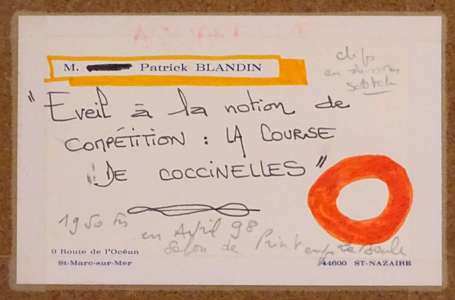 M. Patrick BLANDIN
clip
en
scotch
"Eveil à la notion de
COMPÉTITION : LA COURSE
DE COCCINELLES"
1950 Frs en Avril 98
Salon de Printemps
9 Route de l'Océan
St-Marc-sur-Mer
44600 ST-NAZAIRE